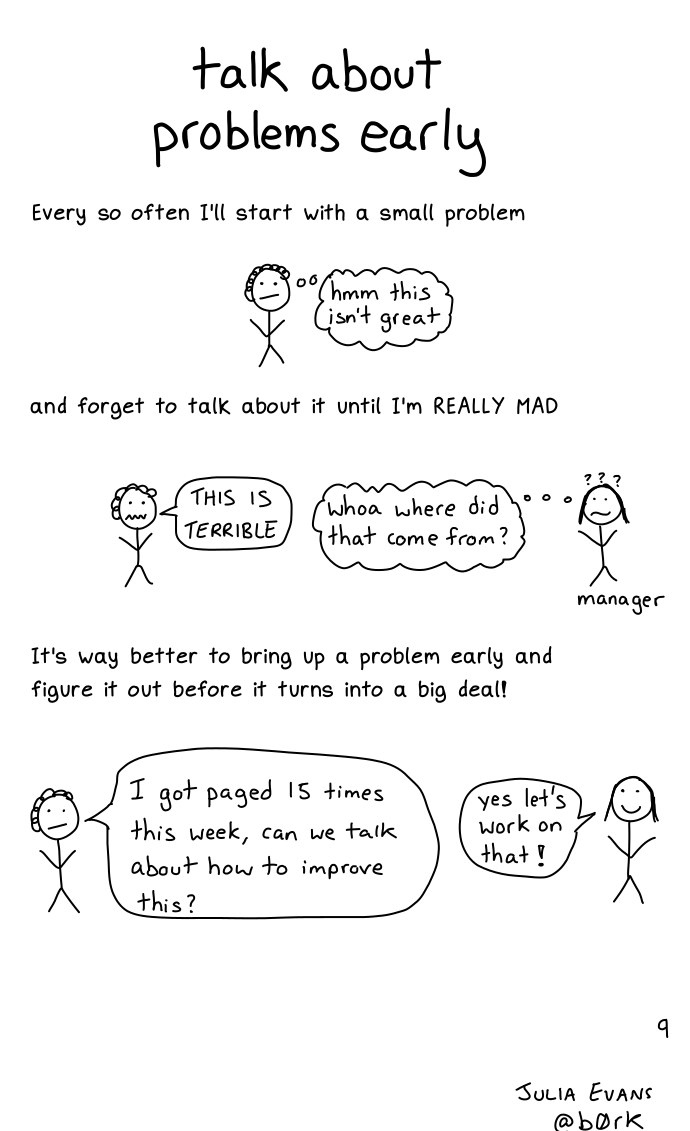 talk about
problems early
Every so often I'll start with a small problem
hmm this
isn't great
and forget to talk about it until I'm REALLY MAD
THIS IS
TERRIBLE
whoa where did
that come from?
? ? ?
manager
It's way better to bring up a problem early and
figure it out before it turns into a big deal!
I got paged 15 times
this week, can we talk
about how to improve
this?
yes let's
work on
that!
9
JULIA EVANS
@b0rk